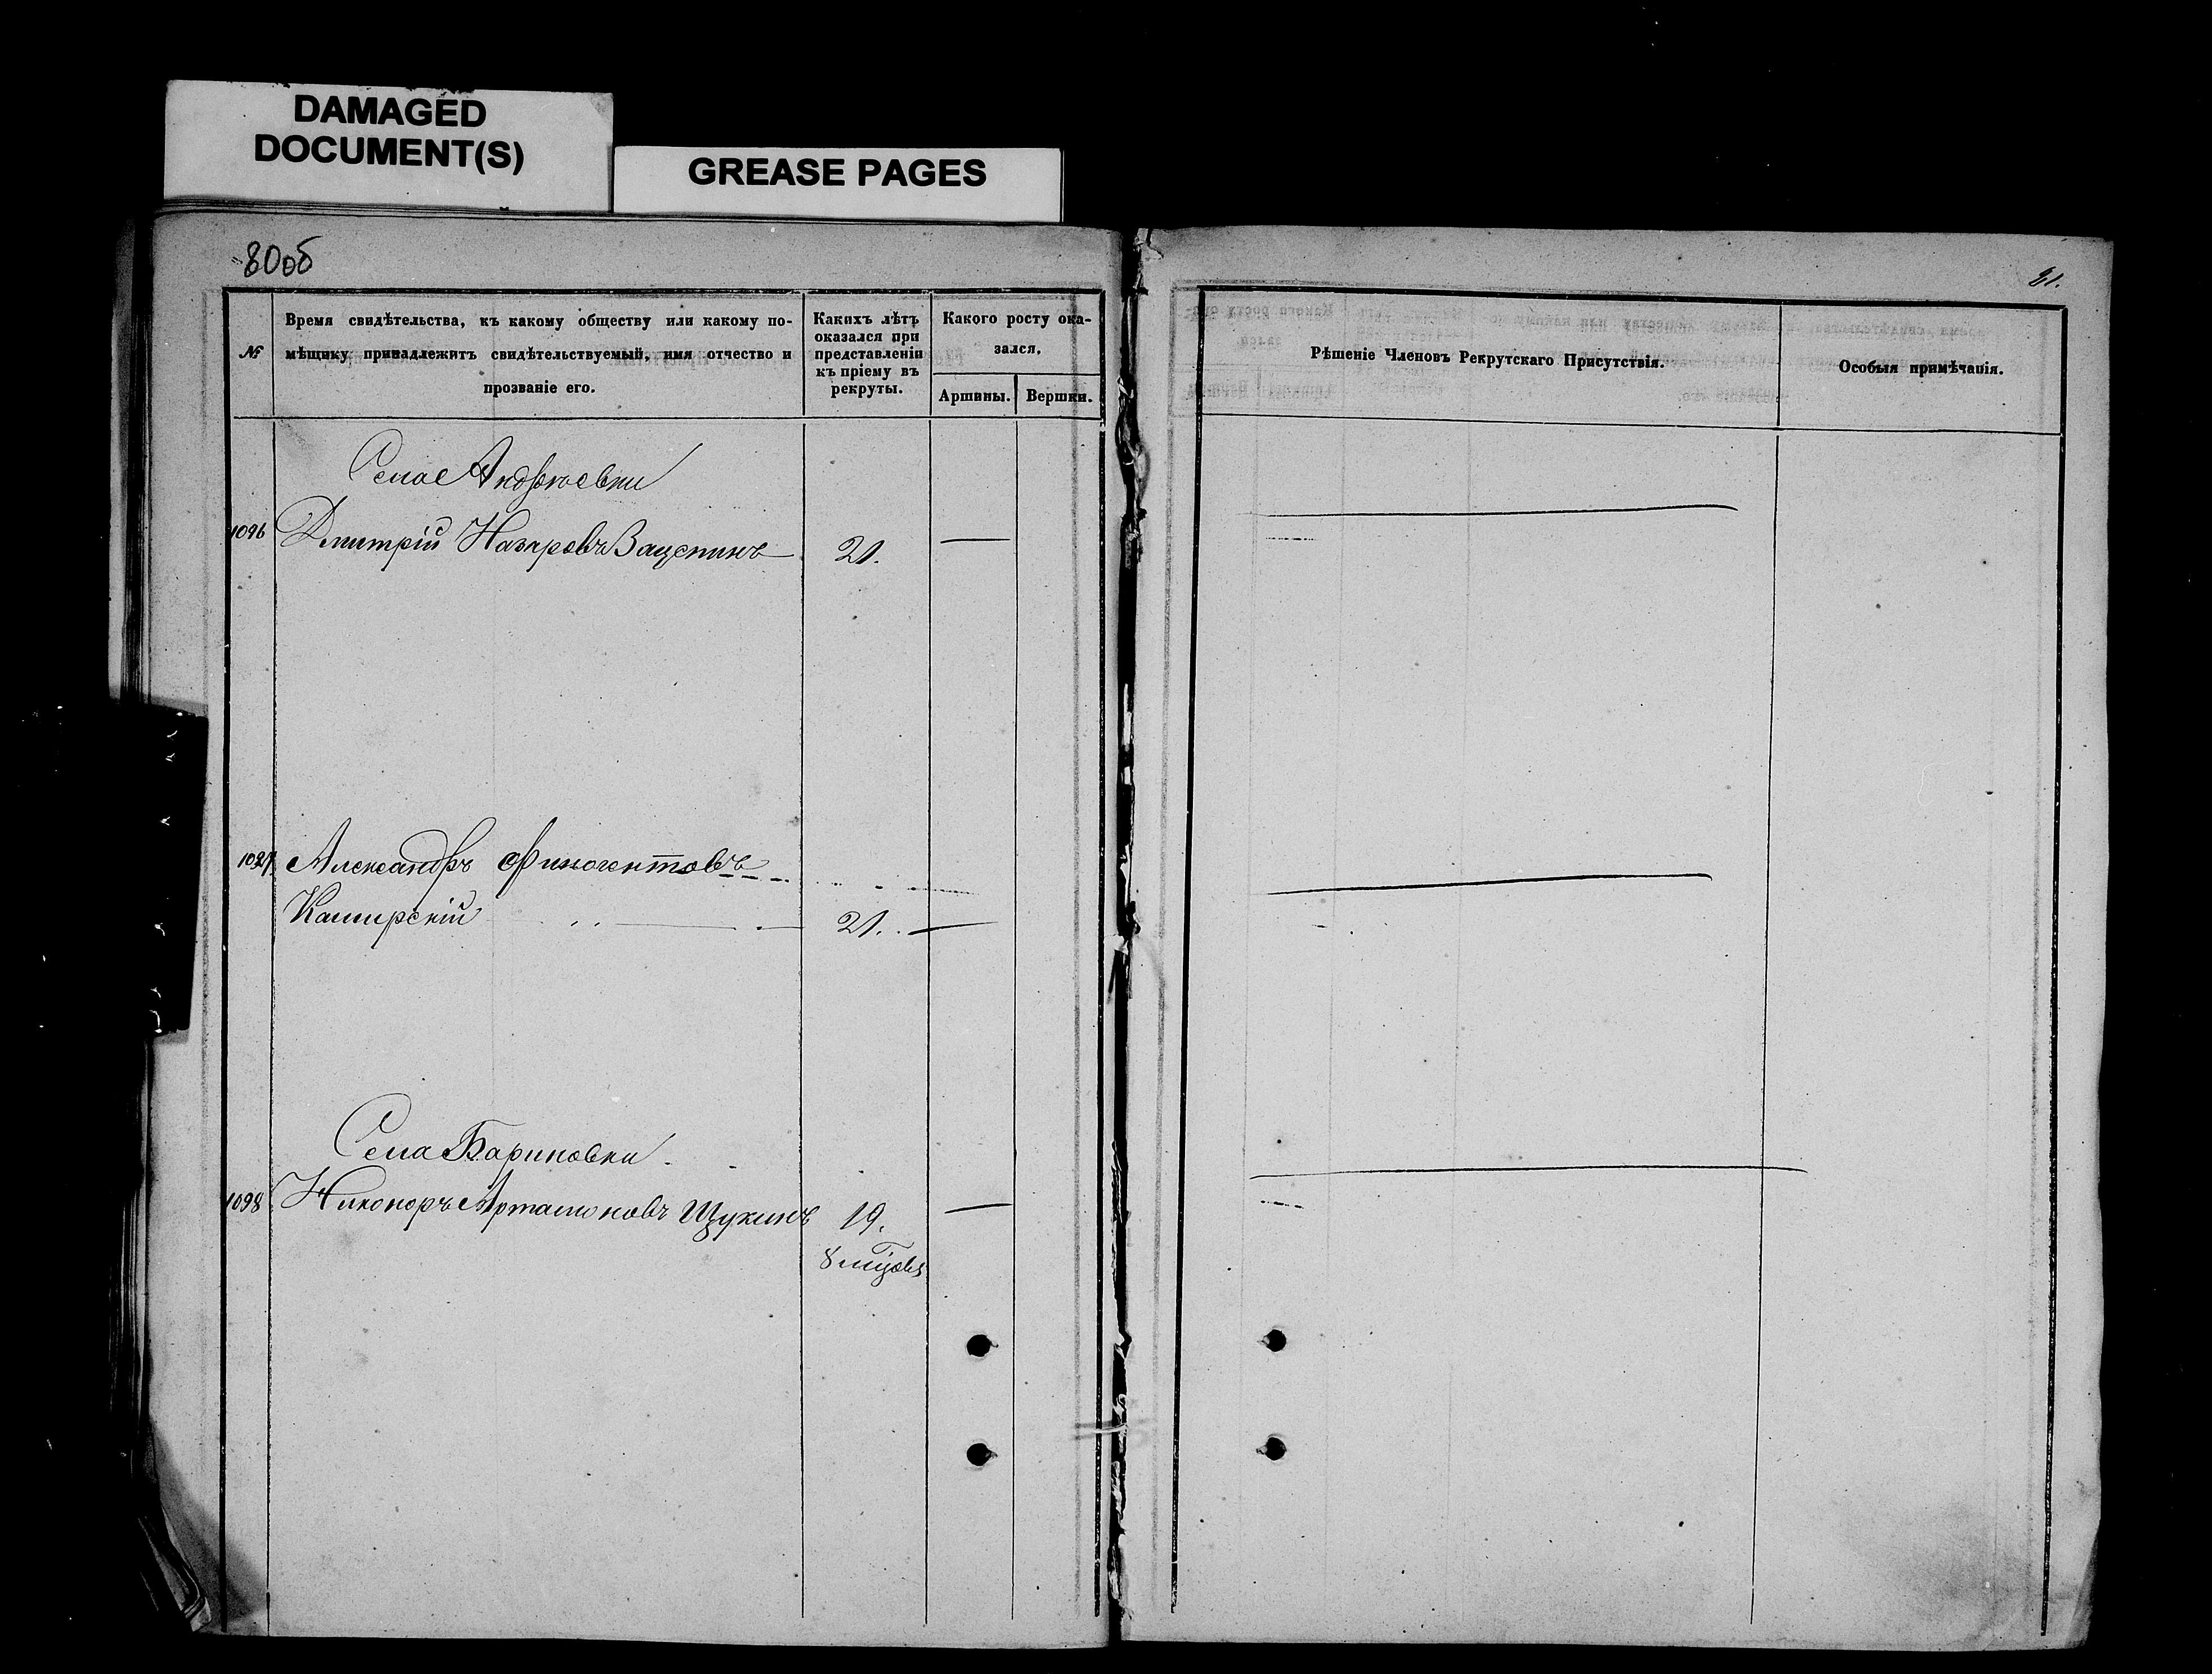 DAMAGED
DOCUMENT(S)
GREASE PAGES
80об
№
Время свидѣтельства, къ какому обществу или какому по-
мѣщику принадлежитъ свидѣтельствуемый, имя отчество и
прозваніе его.
Какихъ лѣтъ
оказался при
представленіи
къ пріему въ
рекруты.
Какого росту ока-
зался.
Аршины.
Вершки.
Села Андреевки
1096 Дмитрій Назаровъ Зацепинъ 21.
1097 Александръ Финогентовъ
Каширскій 21.
Села Бариновки
1098 Никоноръ Артамоновъ Щукинъ 19.
8 мцовъ
81.
Рѣшеніе Членовъ Рекрутскаго Присутствія.
Особыя примѣчанія.